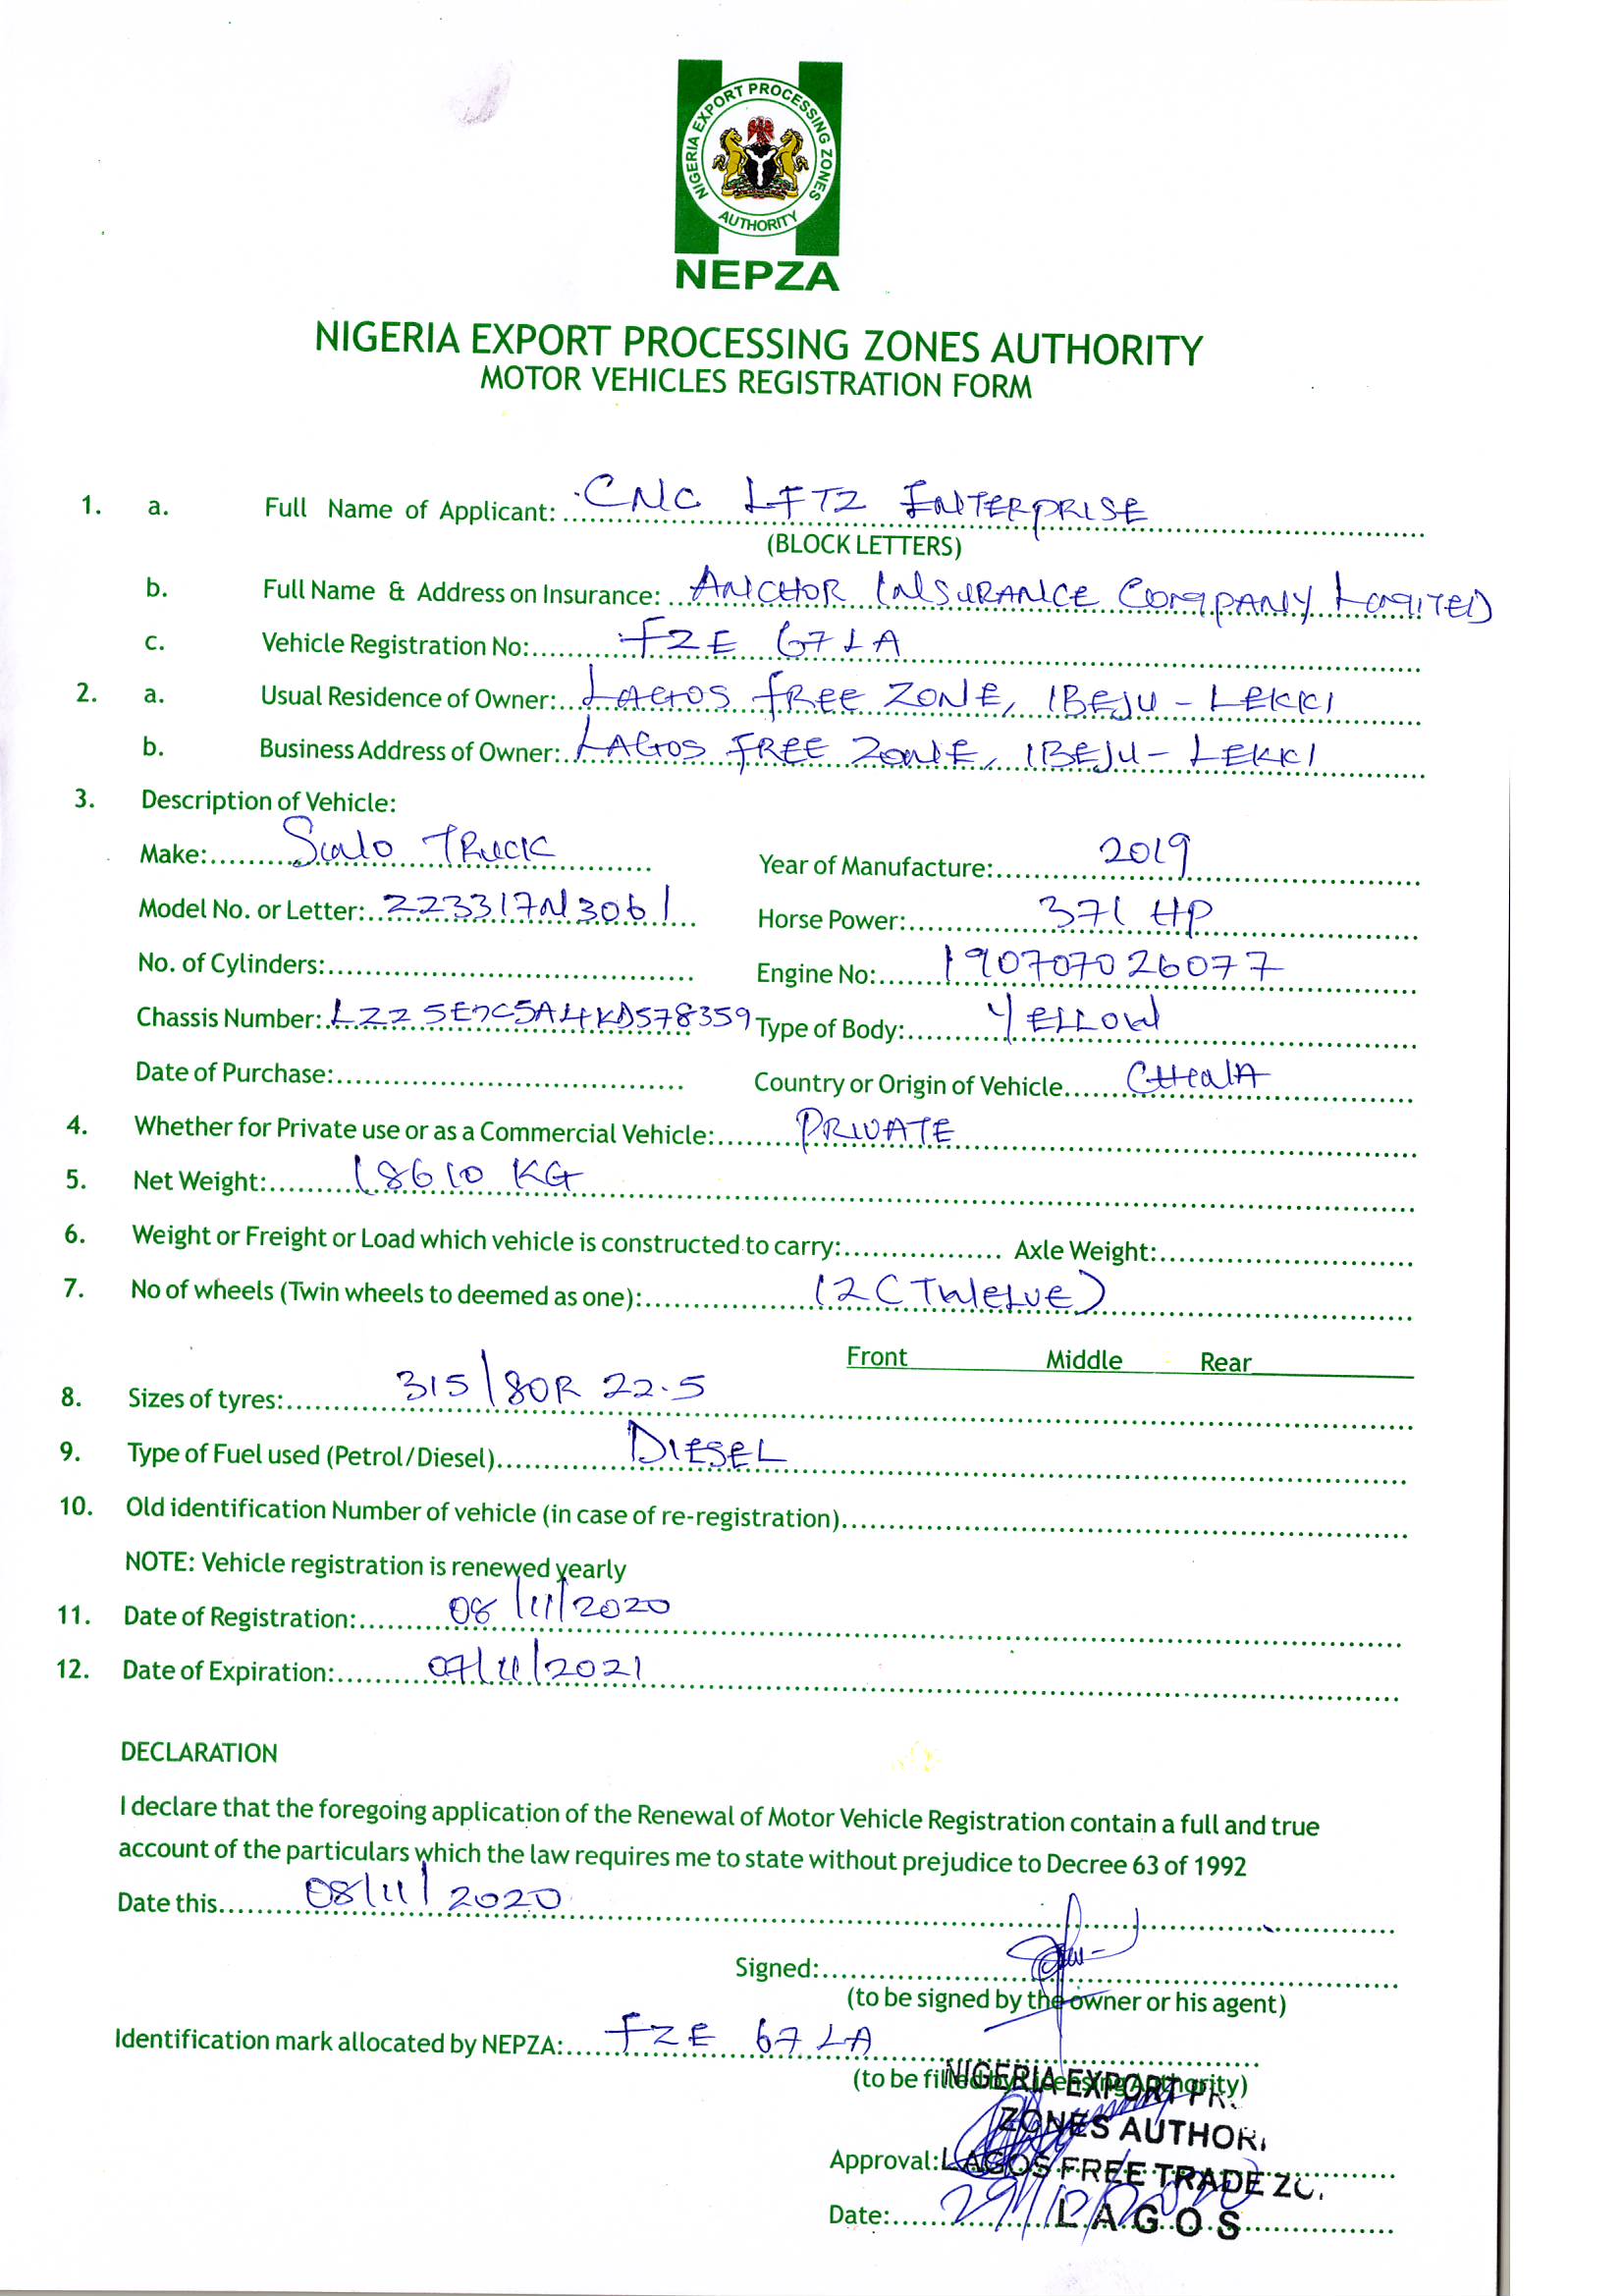 NIGERIA EXPORT PROCESSING ZONES
AUTHORITY
NEPZA
NIGERIA EXPORT PROCESSING ZONES AUTHORITY
MOTOR VEHICLES REGISTRATION FORM
1. a. Full Name of Applicant: CNC LFTZ ENTERPRISE
(BLOCK LETTERS)
b. Full Name & Address on Insurance: ANCHOR INSURANCE COMPANY LIMITED
c. Vehicle Registration No: FZE 67 LA
2. a. Usual Residence of Owner: LAGOS FREE ZONE, IBEJU - LEKKI
b. Business Address of Owner: LAGOS FREE ZONE, IBEJU - LEKKI
3. Description of Vehicle:
Make: Sino TRUCK Year of Manufacture: 2019
Model No. or Letter: ZZ3317N3061 Horse Power: 371 HP
No. of Cylinders: Engine No: 190707026077
Chassis Number: Type of Body: YELLOW
Date of Purchase: Country or Origin of Vehicle CHINA
4. Whether for Private use or as a Commercial Vehicle: PRIVATE
5. Net Weight: 18610 KG
6. Weight or Freight or Load which vehicle is constructed to carry: Axle Weight:
7. No of wheels (Twin wheels to deemed as one): 12 (TWELVE)
Front Middle Rear
8. Sizes of tyres: 315/80R 22.5
9. Type of Fuel used (Petrol/Diesel) DIESEL
10. Old identification Number of vehicle (in case of re-registration)
NOTE: Vehicle registration is renewed yearly
11. Date of Registration: 08/11/2020
12. Date of Expiration: 07/11/2021
DECLARATION
I declare that the foregoing application of the Renewal of Motor Vehicle Registration contain a full and true
account of the particulars which the law requires me to state without prejudice to Decree 63 of 1992
Date this 08/11/2020
Signed:
(to be signed by the owner or his agent)
Identification mark allocated by NEPZA: FZE 67 LA
(to be filled by Licensing Authority)
NIGERIA EXPORT PR
ZONES AUTHOR
Approval: LAGOS FREE TRADE ZO
Date: 29/12/2020
LAGOS